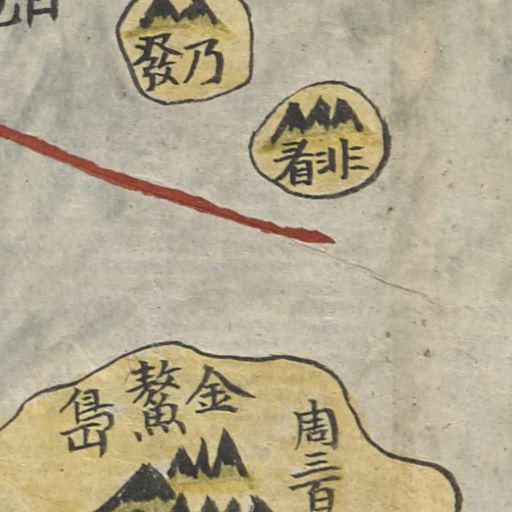 乃發
非看
金鰲島
周三百